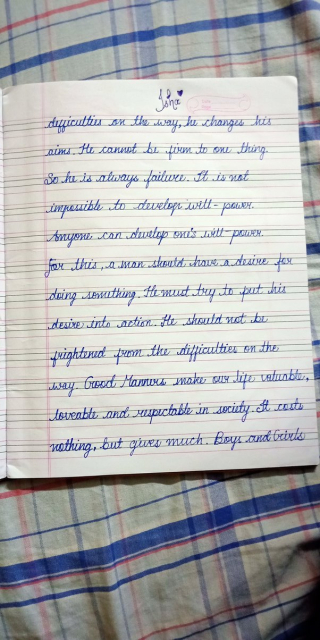 Isha
difficulties on the way, he changes his
aims. He cannot be firm to one thing.
So he is always failure. It is not
impossible to develop will-power.
Anyone can develop one's will-power.
For this, a man should have a desire for
doing something. He must try to put his
desire into action. He should not be
frightened from the difficulties on the
way. Good Manners make our life valuable,
loveable and respectable in society. It costs
nothing, but gives much. Boys and Girls